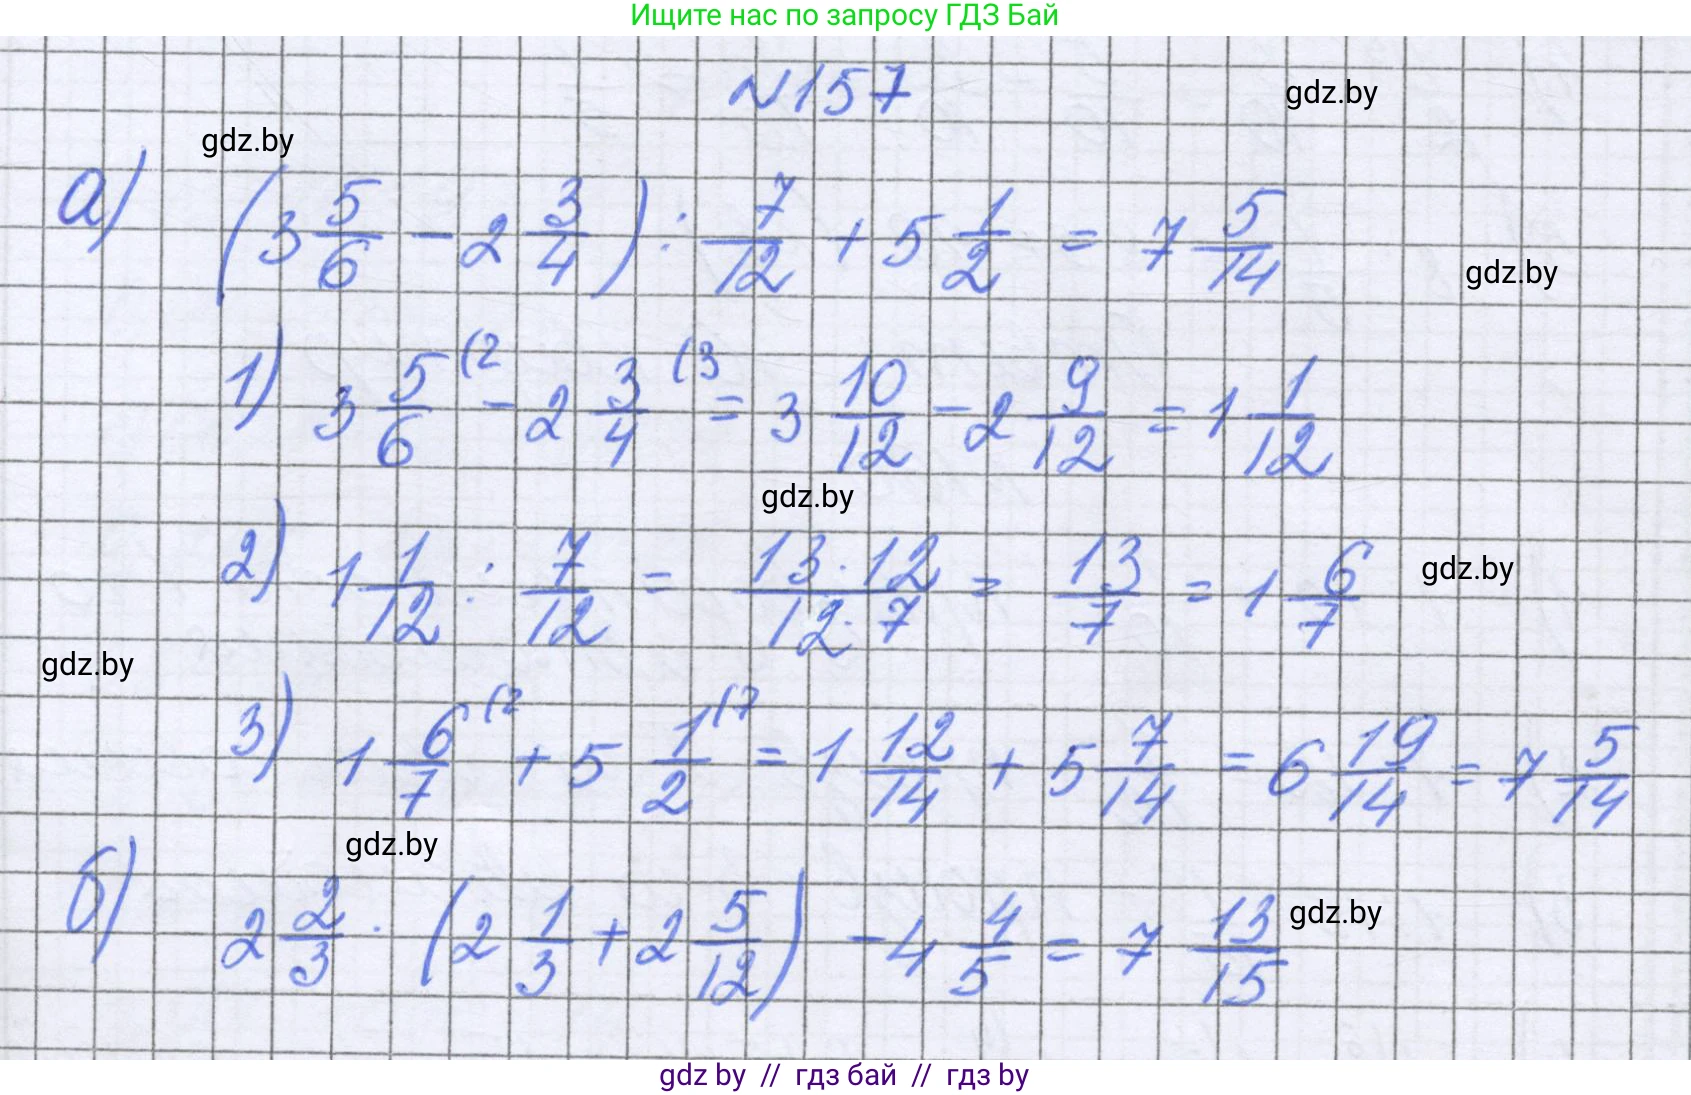 Ищите нас по запросу ГДЗ Бай
№157
gdz.by
gdz.by
а) (3 5/6 - 2 3/4) : 7/12 + 5 1/2 = 7 5/14
gdz.by
1) 3 5/6 (2 - 2 3/4 (3 = 3 10/12 - 2 9/12 = 1 1/12
gdz.by
2) 1 1/12 : 7/12 = 13·12/12·7 = 13/7 = 1 6/7
gdz.by
gdz.by
3) 1 6/7 (2 + 5 1/2 (7 = 1 12/14 + 5 7/14 = 6 19/14 = 7 5/14
gdz.by
б) 2 2/3 · (2 1/3 + 2 5/12) - 4 4/5 = 7 13/15
gdz.by
gdz by // гдз бай // гдз by